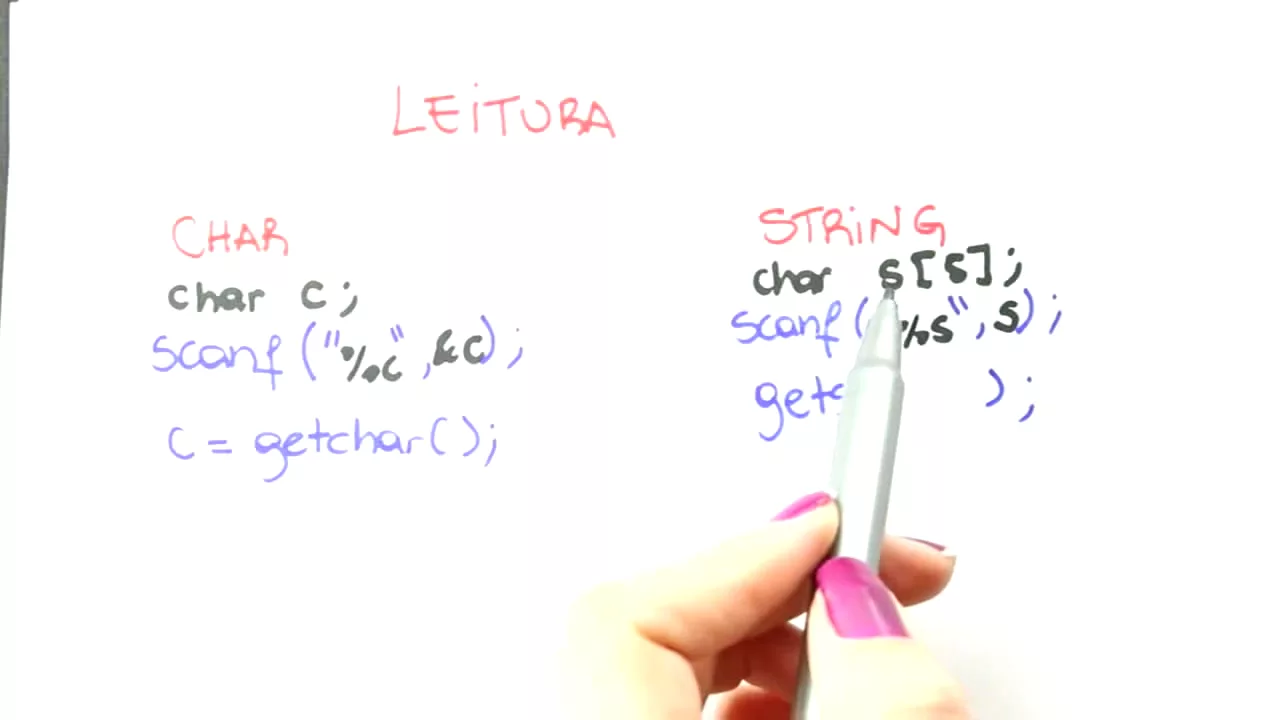 LEITURA
CHAR
char c;
scanf("%c", &c);
c = getchar();
STRING
char s[5];
scanf( %s", s);
gets );